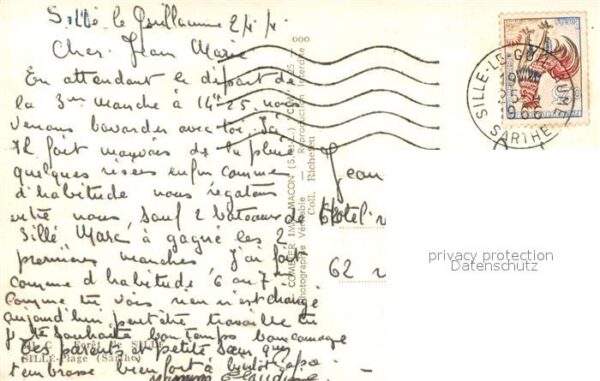 Sillé le Guillaume 2/4/4
Cher Jean Marc
En attendant le départ de
la 3me manche à 14h25 nous
venons bavarder avec toi. Ici
Il fait mauvais de la pluie
quelques risées enfin comme
d'habitude nous régatons
entre nous sauf 2 bateaux de
Sillé Marc à gagné les 2
premières manches j'ai fait
comme d'habitude 6 ou 7
Comme tu vois rien n'est changé
aujourd'hui peut être travaille tu
je te souhaite bon temps bon courage
des parents et petite sœur qui
t'embrasse bien fort à bientôt
Claudine
Forêt de SILLÉ
SILLÉ-Plage (Sarthe)
COMBIER IMP. MACON (S.-&-L.) "CIM"
Photographie Véritable - Reproduction Interdite
Coll. Richefeu
SILLE-LE-GUILLAUME
1966
SARTHE
Jean
Hôtel
62
privacy protection
Datenschutz